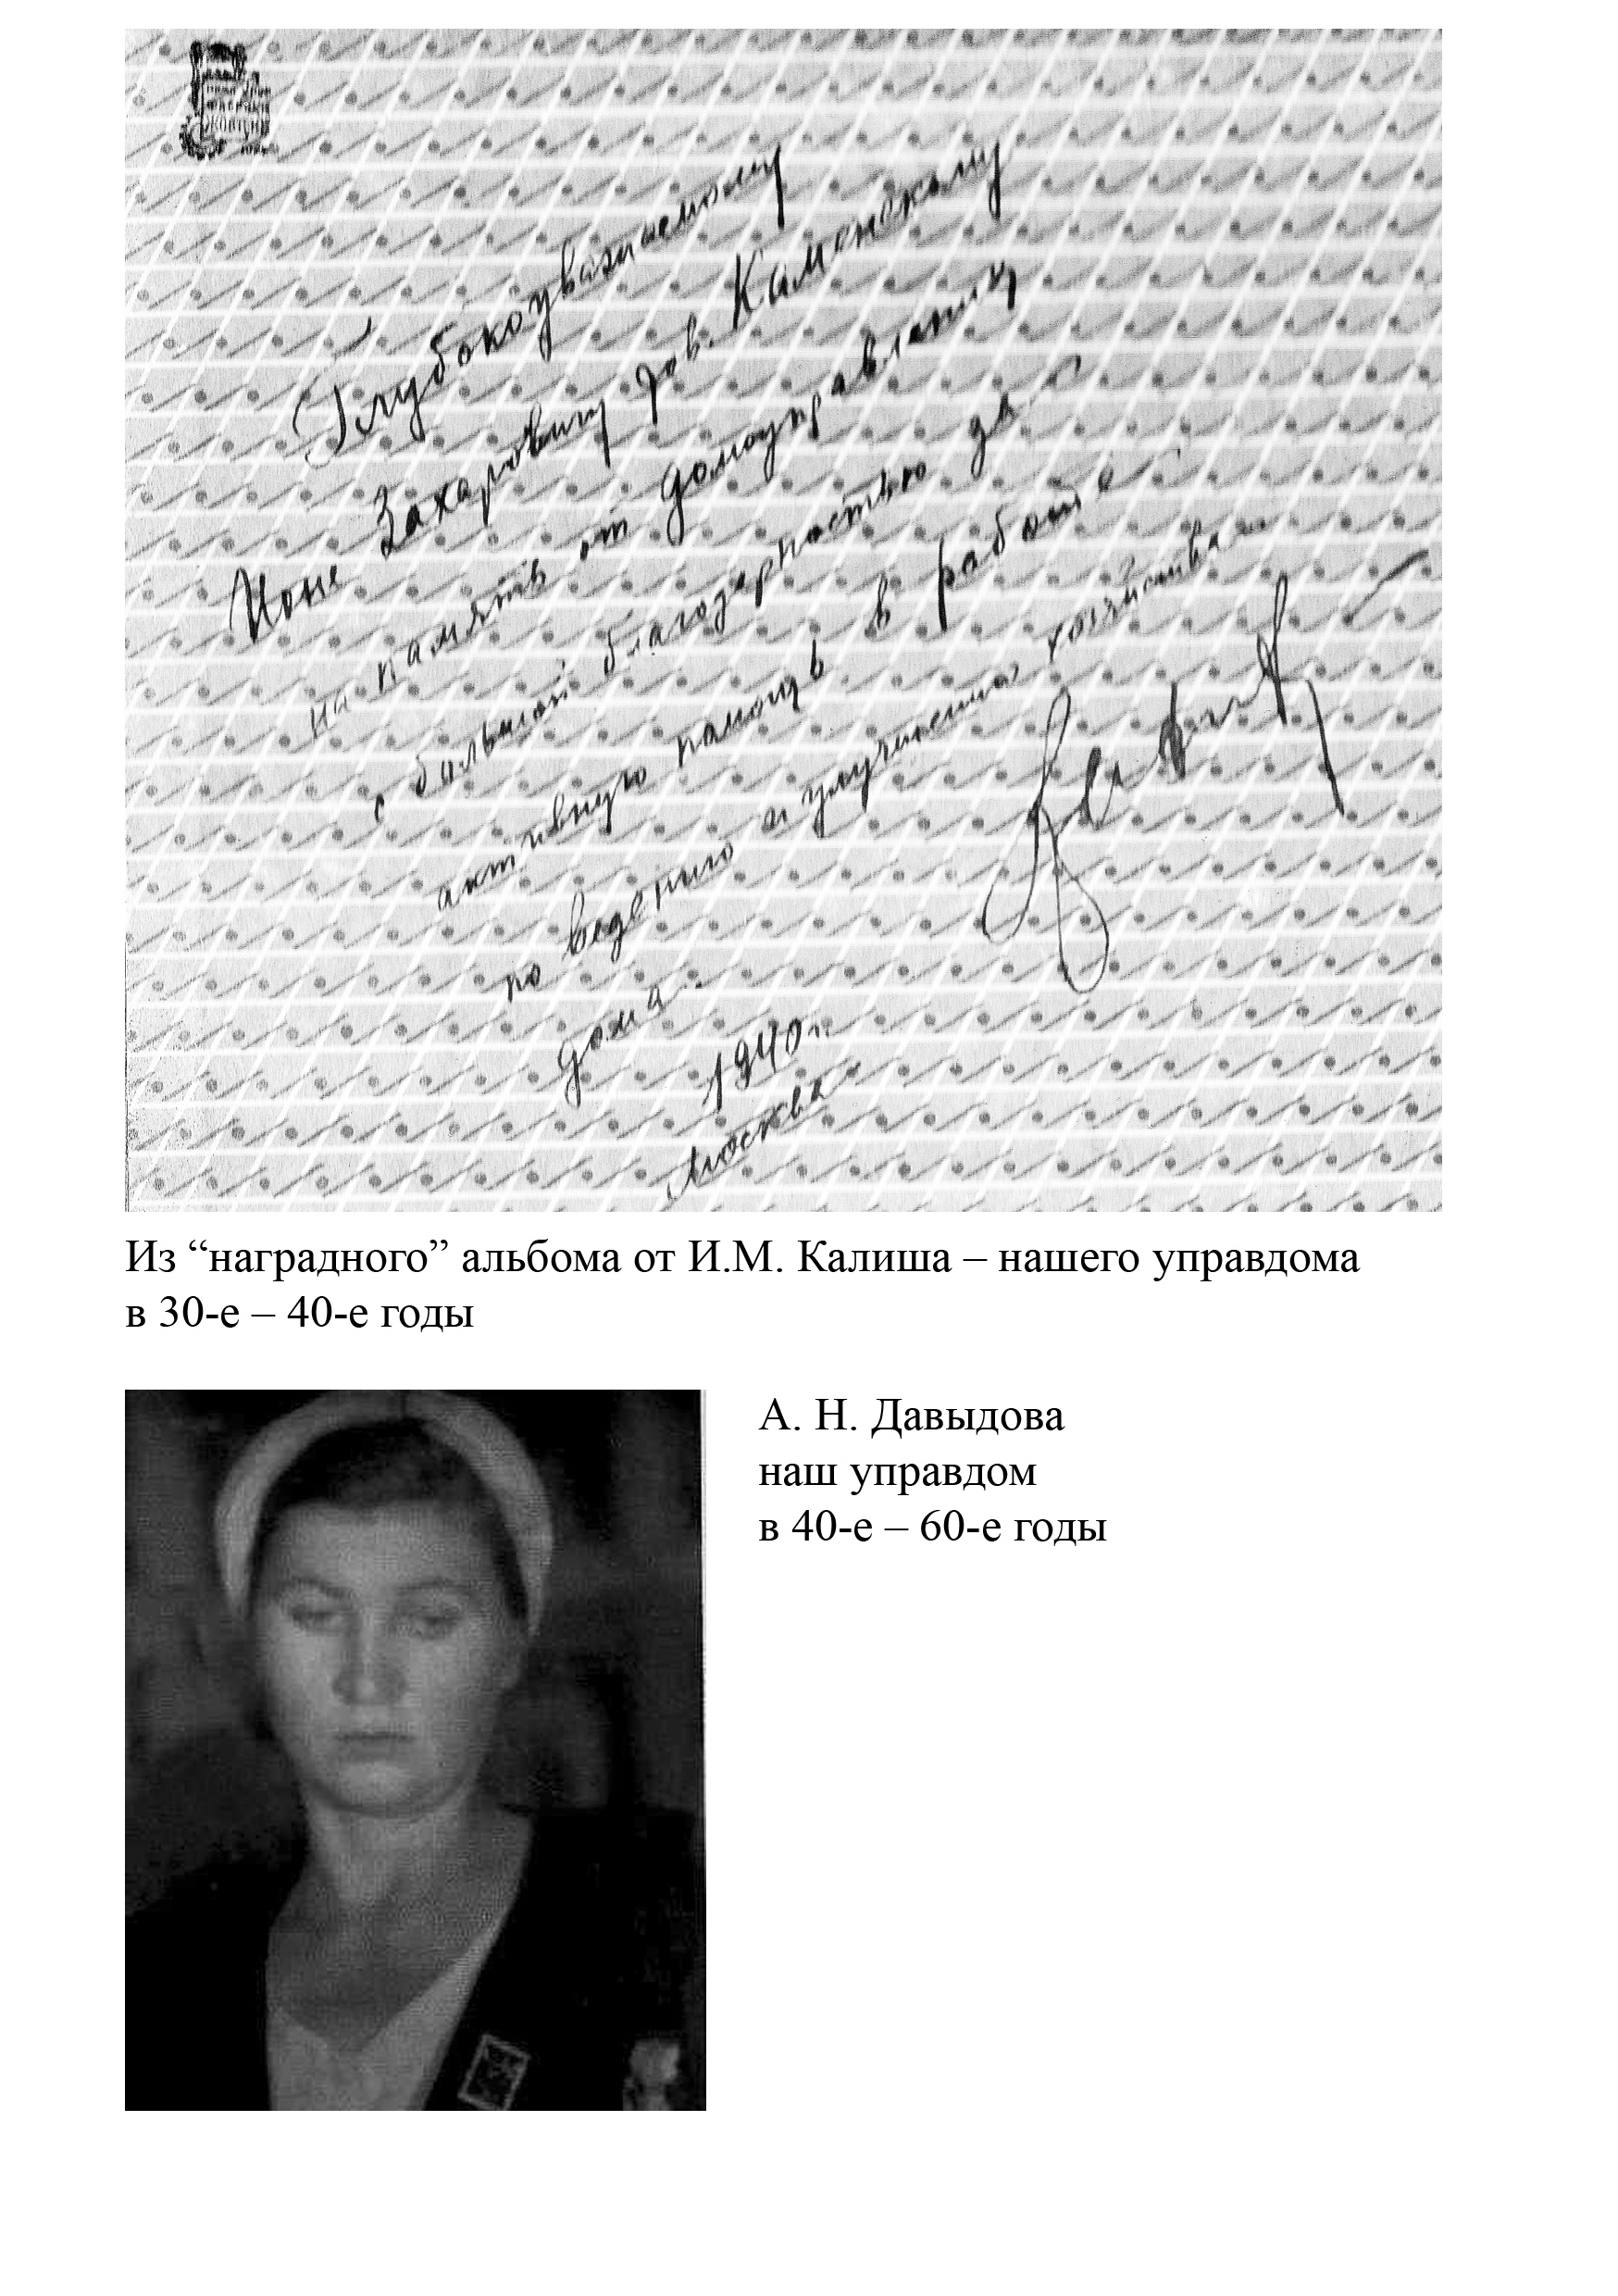 Глубокоуважаемому
Ионе Захаровичу тов. Каменскому
на память от домоуправления
с большой благодарностью за
активную помощь в работе
по ведению и улучшению хозяйства
дома.
1940 г.
Москва
Из “наградного” альбома от И.М. Калиша – нашего управдома
в 30-е – 40-е годы
А. Н. Давыдова
наш управдом
в 40-е – 60-е годы